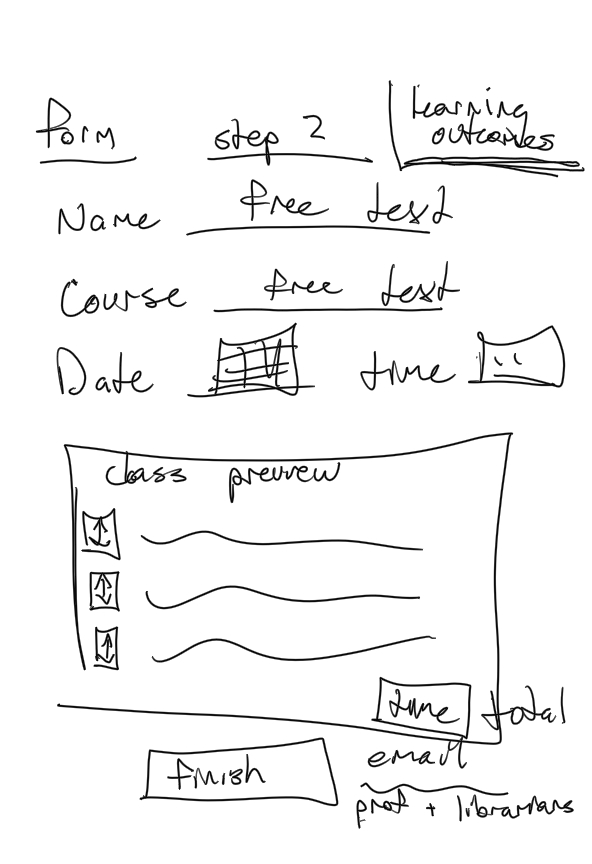 Form step 2 Learning outcomes
Name free text
Course free text
Date time
class preview
time total
finish email
prof + librarians